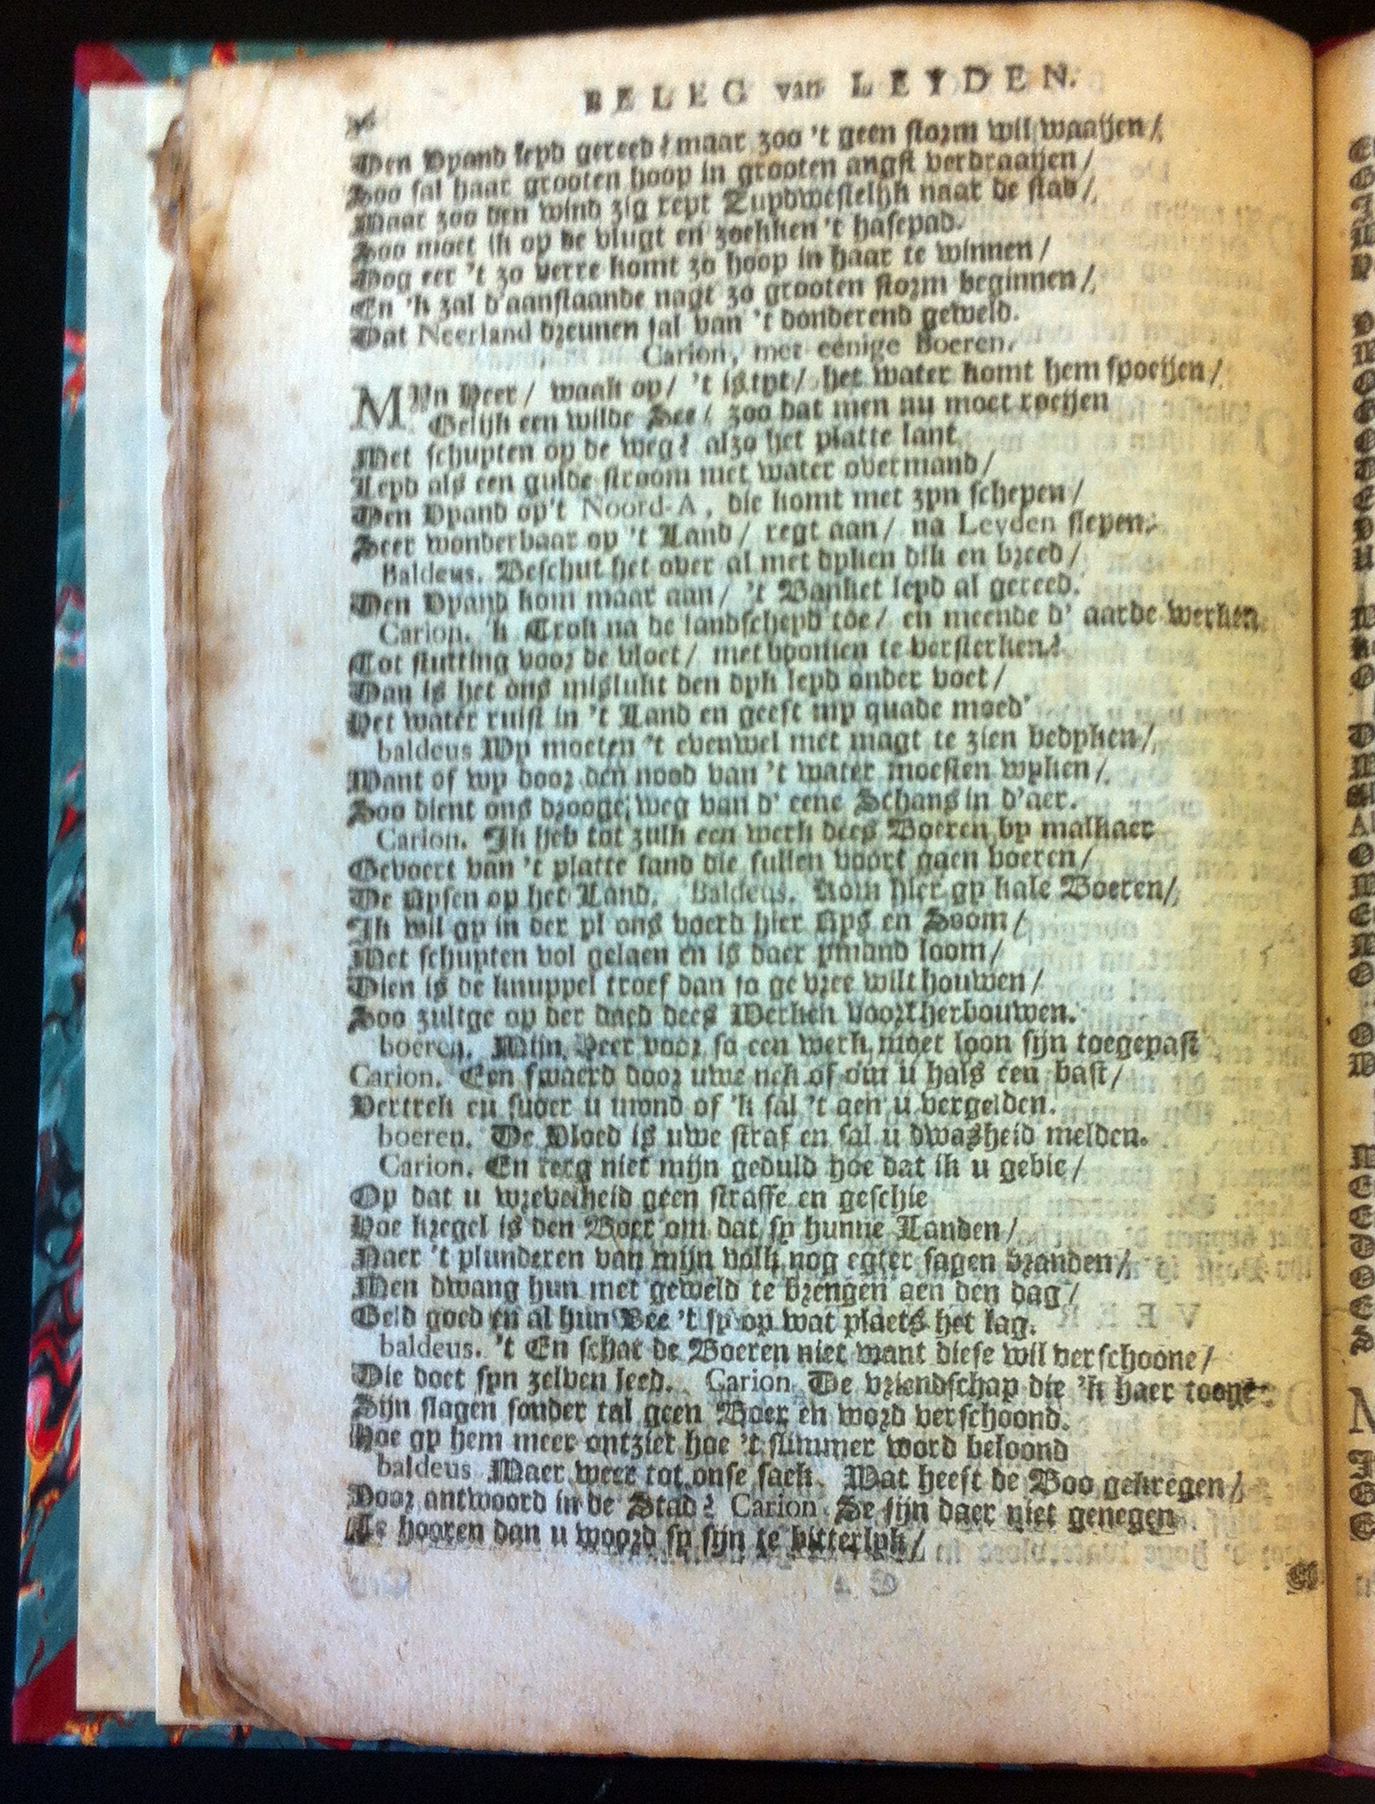 BELEG van LEYDEN.
36
Den Vyand leyd gereed? maar zoo 't geen storm wil waaijen/
Zoo sal haar grooten hoop in grooten angst verdraaijen/
Maar zoo den wind zig rept Zuydwestelijk naar de stad/
Zoo moet ik op de vlugt en zoekken 't hasepad.
Dog eer 't zo verre komt zo hoop in haar te winnen/
En 'k zal d'aanstaande nagt zo grooten storm beginnen/
Dat Neerland dreunen sal van 't donderend geweld.
Carion, met eenige Boeren.
MYn Heer/ waak op/ 't is tyt/ het water komt hem spoeijen/
Gelijk een wilde See/ zoo dat men nu moet roeijen
Met schuyten op de weg? alzo het platte lant
Leyd als een gulde stroom met water overmand/
Den Vyand op't Noord-A, die komt met zyn schepen/
Seer wonderbaar op 't Land/ regt aan/ na Leyden slepen.
Baldeus. Beschut het over al met dyken dik en breed/
Den Vyand kom maar aan/ 't Banket leyd al gereed.
Carion. 'k Trok na de landscheyd toe/ en meende d' aarde werken
Tot stutting voor de vloet/ met boomen te versterken?
Dan is het ons mislukt den dyk leyd onder voet/
Het water ruist in 't Land en geeft my quade moed.
baldeus Wy moeten 't evenwel met magt te zien bedyken/
Want of wy door den nood van 't water moesten wyken/
Soo dient ons drooge weg van d' eene Schans in d'aer.
Carion. Ik heb tot zulk een werk dees Boeren by malkaer
Gevoert van 't platte land die sullen voort gaen voeren/
De Rysen op het Land. Baldeus. Kom hier gy kale Boeren/
Ik wil gy in der yl ons voerd hier Rys en Soom/
Met schuyten vol gelaen en is daer ymand loom/
Dien is de knuppel troef dan so ge vree wilt houwen/
Soo zultge op der daed dees Werken voort herbouwen.
boeren. Mijn Heer voor so een werk moet loon sijn toegepast
Carion. Een swaerd door uwe nek of om u hals een bast/
Vertrek en snoer u mond of 'k sal 't aen u vergelden.
boeren. De Vloed is uwe straf en sal u dwasheid melden.
Carion. En terg niet mijn geduld hoe dat ik u gebie/
Op dat u wrevelheid geen straffe en geschie
Hoe kregel is den Boer om dat sy hunne Landen/
Naer 't plunderen van mijn volk nog egter sagen branden/
Men dwang hun met geweld te brengen aen den dag/
Geld goed en al hun Vee 't sy op wat plaets het lag.
baldeus. 't En schat de Boeren niet want diese wil verschoone/
Die doet syn zelven leed. Carion De vriendschap die 'k haer toone
Sijn slagen sonder tal geen Boer en word verschoond.
Hoe gy hem meer ontziet hoe 't slimmer word beloond
baldeus Maer weer tot onse saek. Wat heeft de Boo gekregen/
Voor antwoord in de Stad? Carion Se sijn daer niet genegen
Te hooren dan u woord sy sijn te bitterlyk/